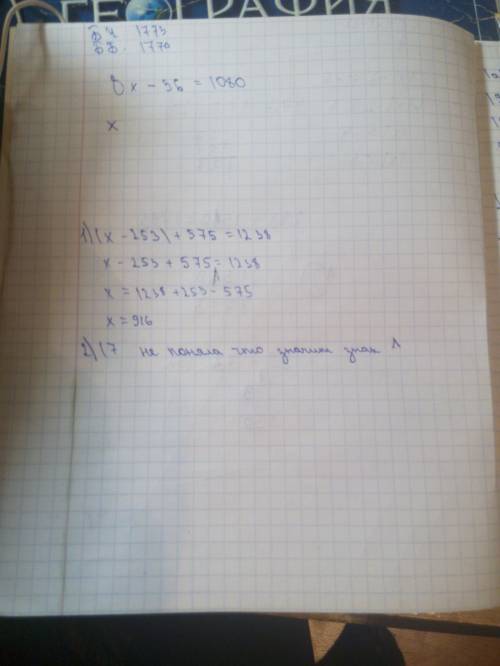 ГЕОГРАФИЯ
БЧ 1773
ББ. 1770
8x - 56 = 1080
x
1) (x - 253) + 575 = 1238
x - 253 + 575 = 1238
x = 1238 + 253 - 575
x = 916
2) (7 не поняла что значит знак Λ